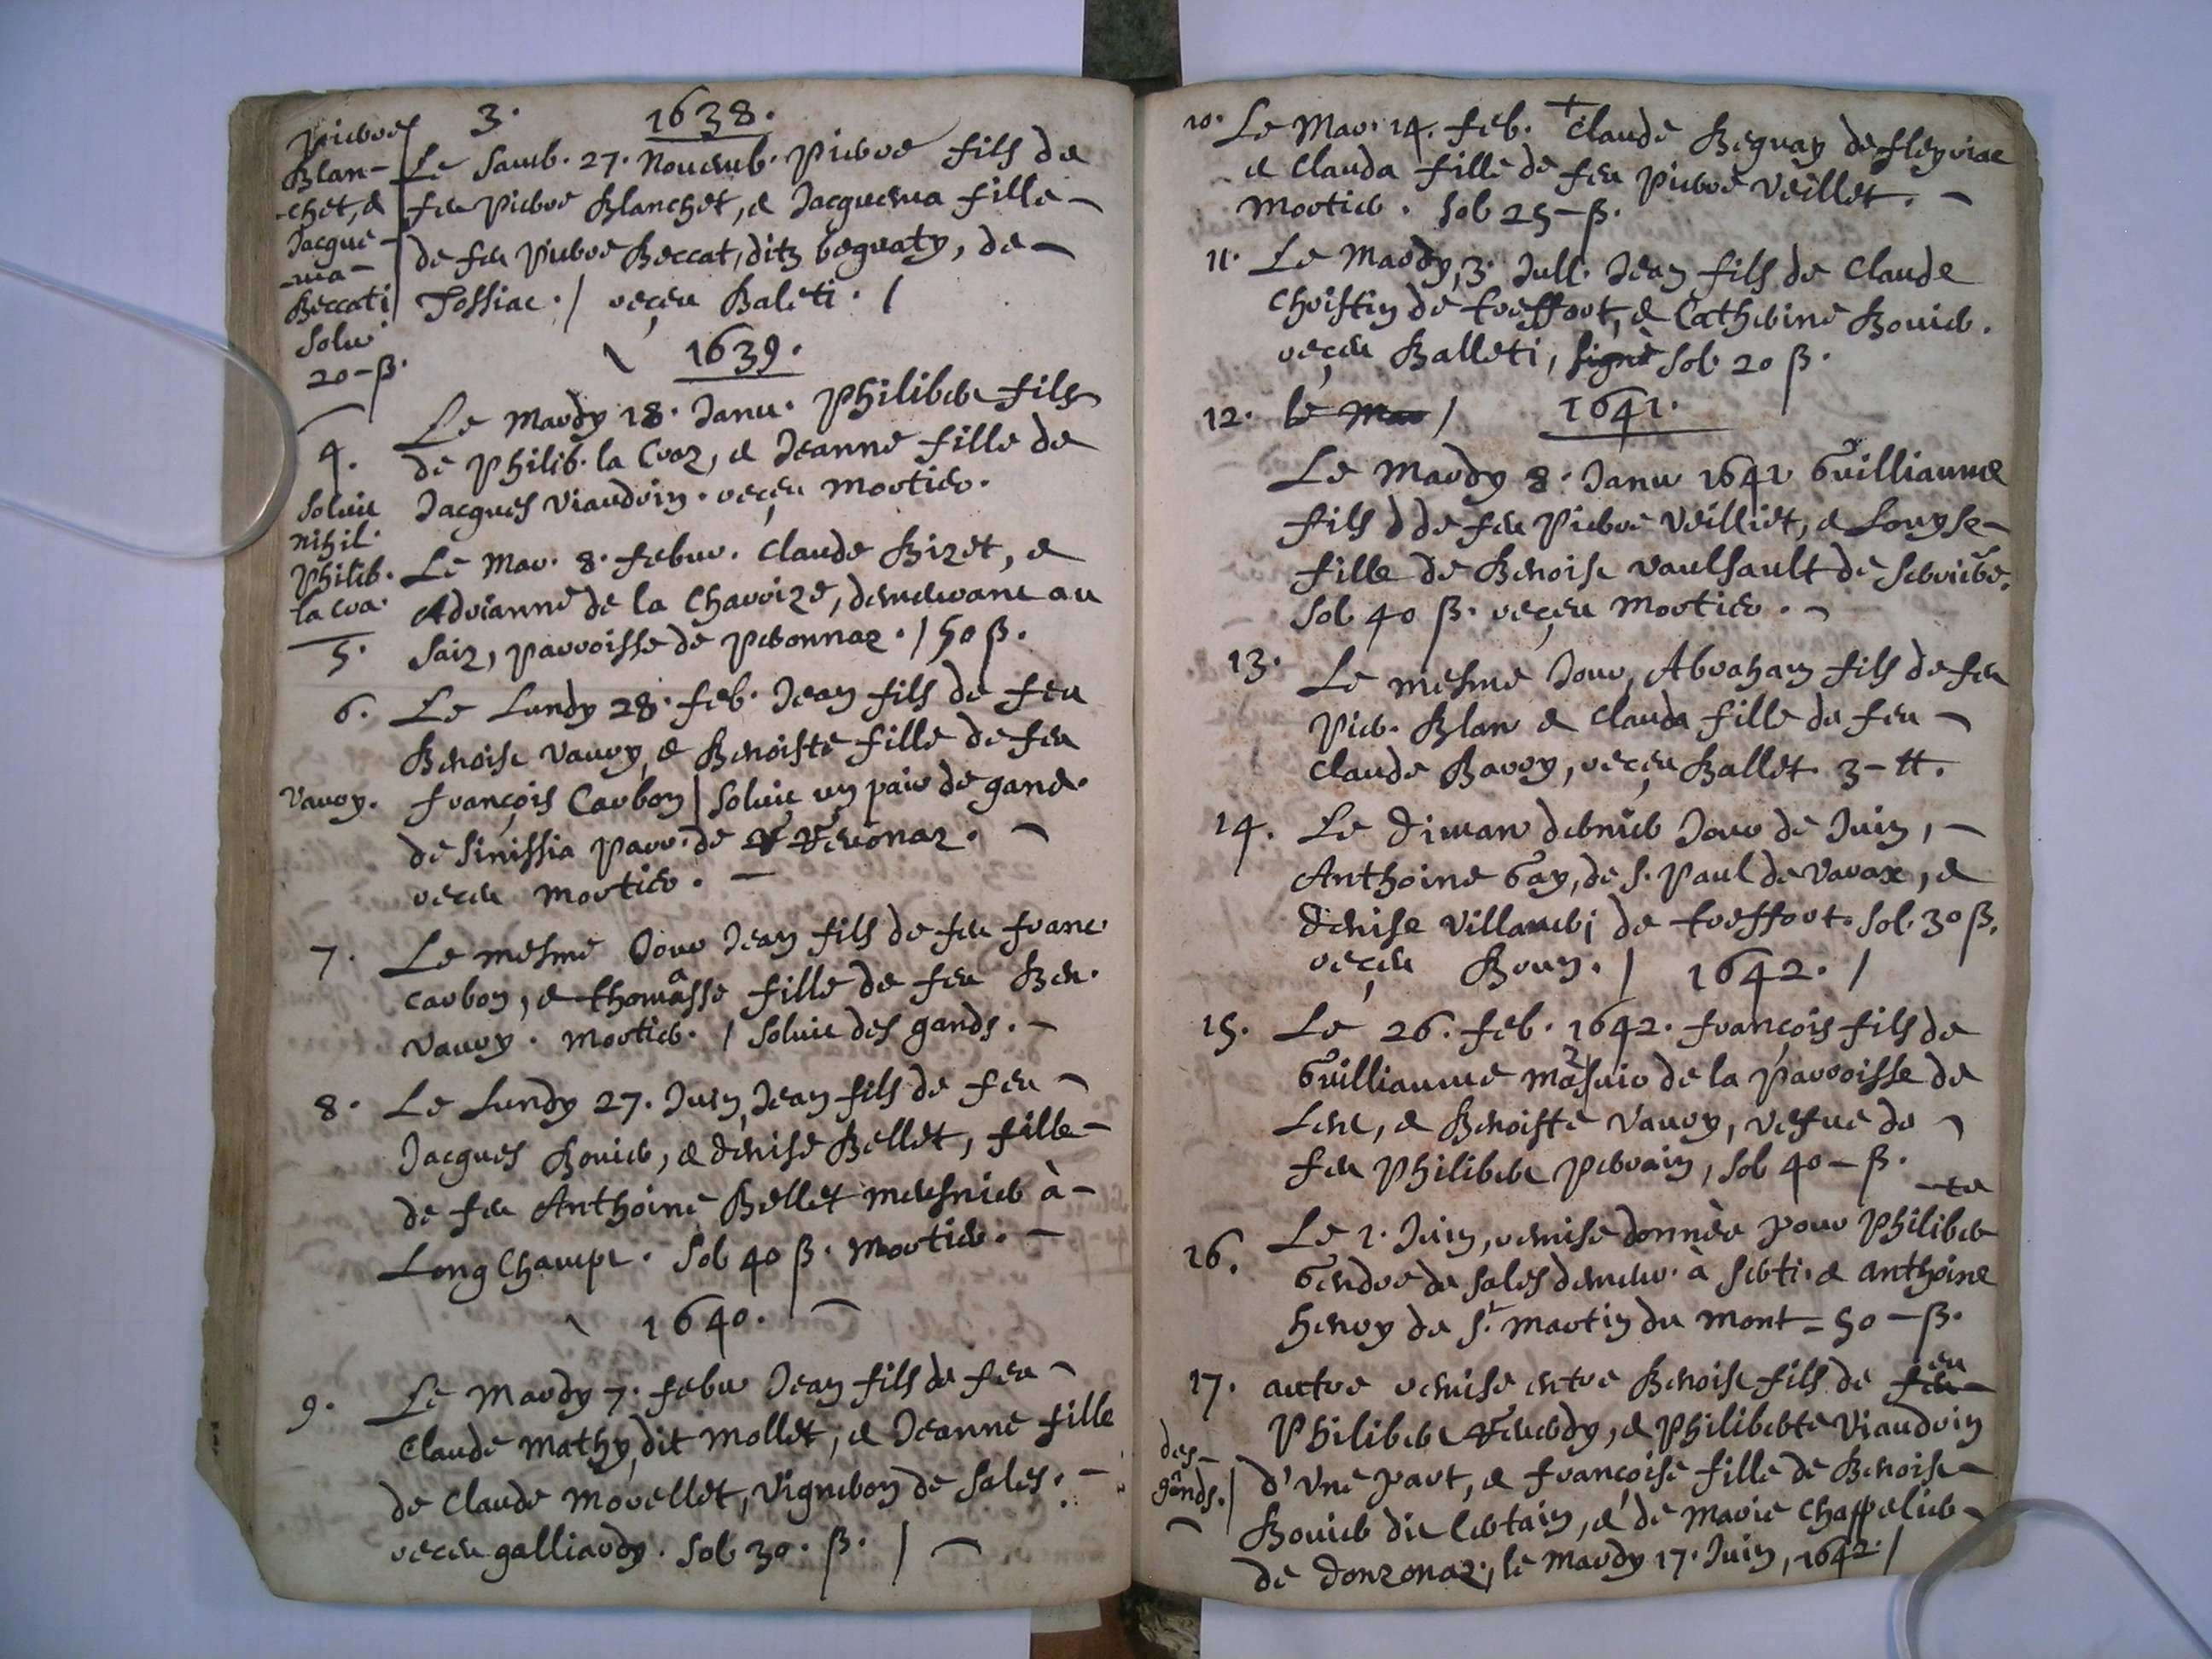 3. 1638.
Pierre
Blan-
-chet, &
Jacque-
-ma-
Beccati
Solu
20-ß.
Le Samb. 27. Novemb. Pierre fils de
feu Pierre Blanchet, & Jacquema fille-
de feu Pierre Beccat, ditz beguaty, de-
Fossiac. / reçeu Baleti. /
1639.
4.
Le Mardy 18. Janu. Philibert fils
de Philib. la Craz, & Jeanne fille de
Jacques Viaudrin. reçeu Mortier.
Soluit
nihil.
Philib.
la Cra.
5.
Le Mar. 8. febur. Claude Bizet, &
Adrianne de la Charrize, demeurant au
Saiz, parroisse de Peronnaz. / 50 ß.
6. Le Lundy 28. feb. Jean fils de feu
Benoist Varry, & Benoiste fille de feu
Varry. françois Carbon / soluit un pair de gand.
de Sinissia parr. de Treronaz.
receu Mortier.-
7. Le mesme Jour Jean fils de feu franc.
Carbon, & thomasse fille de feu Ben.
Varry. Mortier. / Soluit des gands.-
8. Le Lundy 27. Juin, Jean fils de feu
Jacques Bouier, & denise Bellet, fille-
de feu Anthoine Bellet meusnier à-
Long Champt. Sol. 40 ß. Mortier.-
1640.
9. Le Mardy 7. febur Jean fils de feu
Claude Mathy, dit Mollet, & Jeanne fille
de Claude Morellet, Vigneron de Sales.-
receu galliardy. Sol. 30. ß. /
10. Le Mar. 14. feb. + Claude Beguay de fleyriac
& Clauda fille de feu Pierre Veillet.-
Mortier. Sol 25-ß.
11. Le Mardy, 3. Jull. Jean fils de Claude
Christin de treffort, & Catherine Bouier.
reçeu Balleti, signé Sol. 20 ß.
12. le Mar / 1641.
Le Mardy 8. Janu 1641 Guilliaume
fils d de feu Pierre Veilliet, & Louyse-
fille de Benoist Vaulsault de
Sol 40 ß. reçeu Mortier.
13. Le mesme Jour, Abraham fils de feu
Pier. Blan & Clauda fille de feu
Claude Bavoy, reçeu Ballet. 3-tt.
14. Le Diman dernier Jour de Juin,-
Anthoine Gay, de S. Paul de Varax, &
denise de treffort. Sol. 30 ß.
reçeu Brun. / 1642. /
15. Le 26. feb. 1642. françois fils de
Guilliaume de la parroisse de
Lent, & Benoiste Varry, vefue de
feu Philibert Perrain, Sol 40-ß.
16. Le 1. Juin, remise donnèe pour Philiber
-te
Gendre de Sales demeur. à & anthoine
henry de St. martin du mont = 50-ß.
17. autre remise entre Benoist fils de feu
Philibert Treuerdy, & Philiberte Viaudrin
des-
gands. /
d'Vne part, & françoise fille de Benoist-
Bouier dit Certain, & de Marie Chappelier
de donzonaz, le Mardy 17. Juin, 1642. /